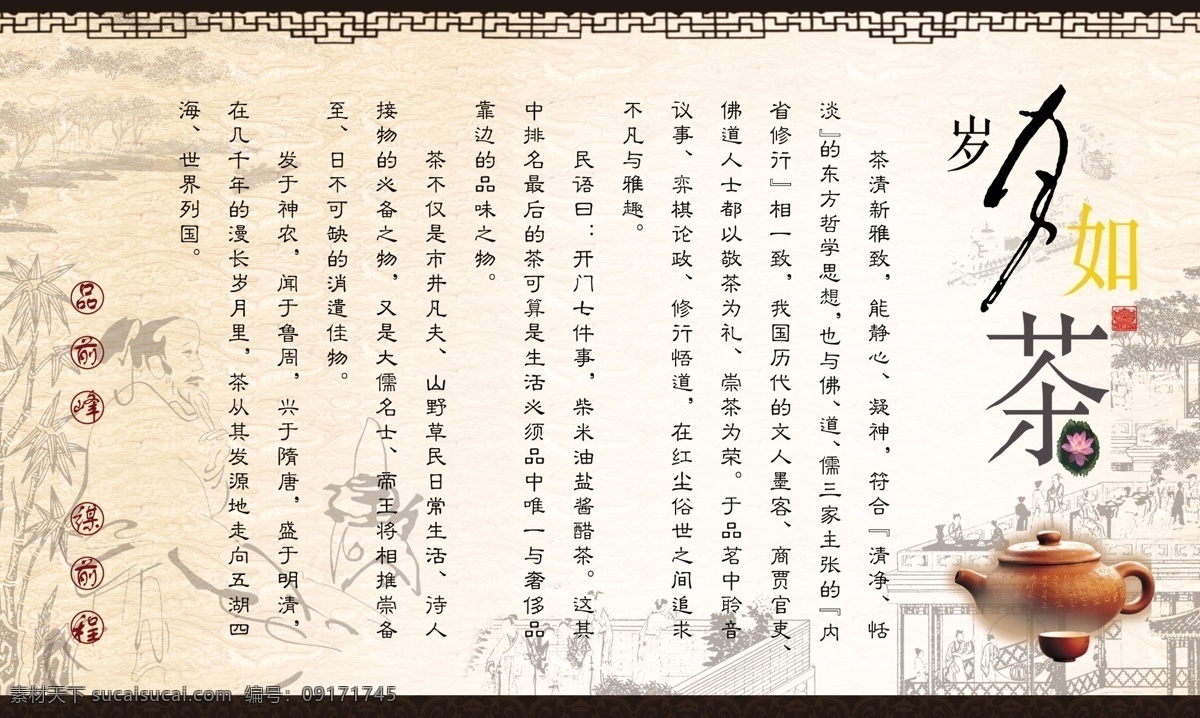 岁月如茶
茶清新雅致，能静心、凝神，符合『清净、恬
淡』的东方哲学思想，也与佛、道、儒三家主张的『内
省修行』相一致，我国历代的文人墨客、商贾官吏、
佛道人士都以敬茶为礼、崇茶为荣。于品茗中聆音
议事、弈棋论政、修行悟道，在红尘俗世之间追求
不凡与雅趣。
民语曰：开门七件事，柴米油盐酱醋茶。这其
中排名最后的茶可算是生活必须品中唯一与奢侈品
靠边的品味之物。
茶不仅是市井凡夫、山野草民日常生活、待人
接物的必备之物，又是大儒名士、帝王将相推崇备
至、日不可缺的消遣佳物。
发于神农，闻于鲁周，兴于隋唐，盛于明清，
在几千年的漫长岁月里，茶从其发源地走向五湖四
海、世界列国。
品前峰 谋前程
素材天下 sucaisucai.com 编号：09171745